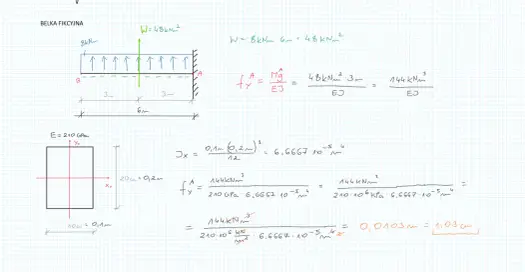 BELKA FIKCYJNA
W = 48kNm²
8kNm
W = 8kNm · 6m = 48kNm²
A
A
f_y^A = M_g^A / EJ = 48kNm² · 3m / EJ = 144kNm³ / EJ
3m
3m
6m
E = 210GPa
y₀
x₀
20cm = 0,2m
10cm = 0,1m
Jx = 0,1m (0,2m)³ / 12 = 6,6667 · 10⁻⁵ m⁴
f_y^A = 144kNm³ / 210GPa · 6,6667 · 10⁻⁵ m⁴ = 144kNm³ / 210 · 10⁶ kPa · 6,6667 · 10⁻⁵ m⁴ =
= 144kNm³ / 210 · 10⁶ kN/m² · 6,6667 · 10⁻⁵ m⁴ = 0,0103m = 1,03cm